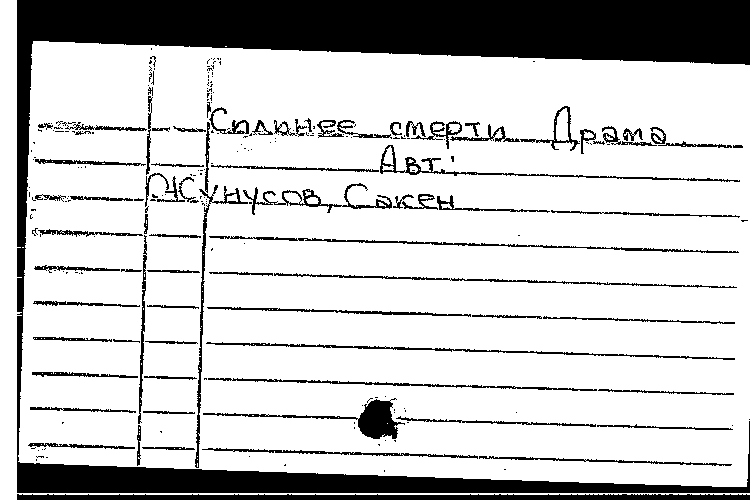 Сильнее смерти Драма.
Авт.:
Жунусов, Сакен